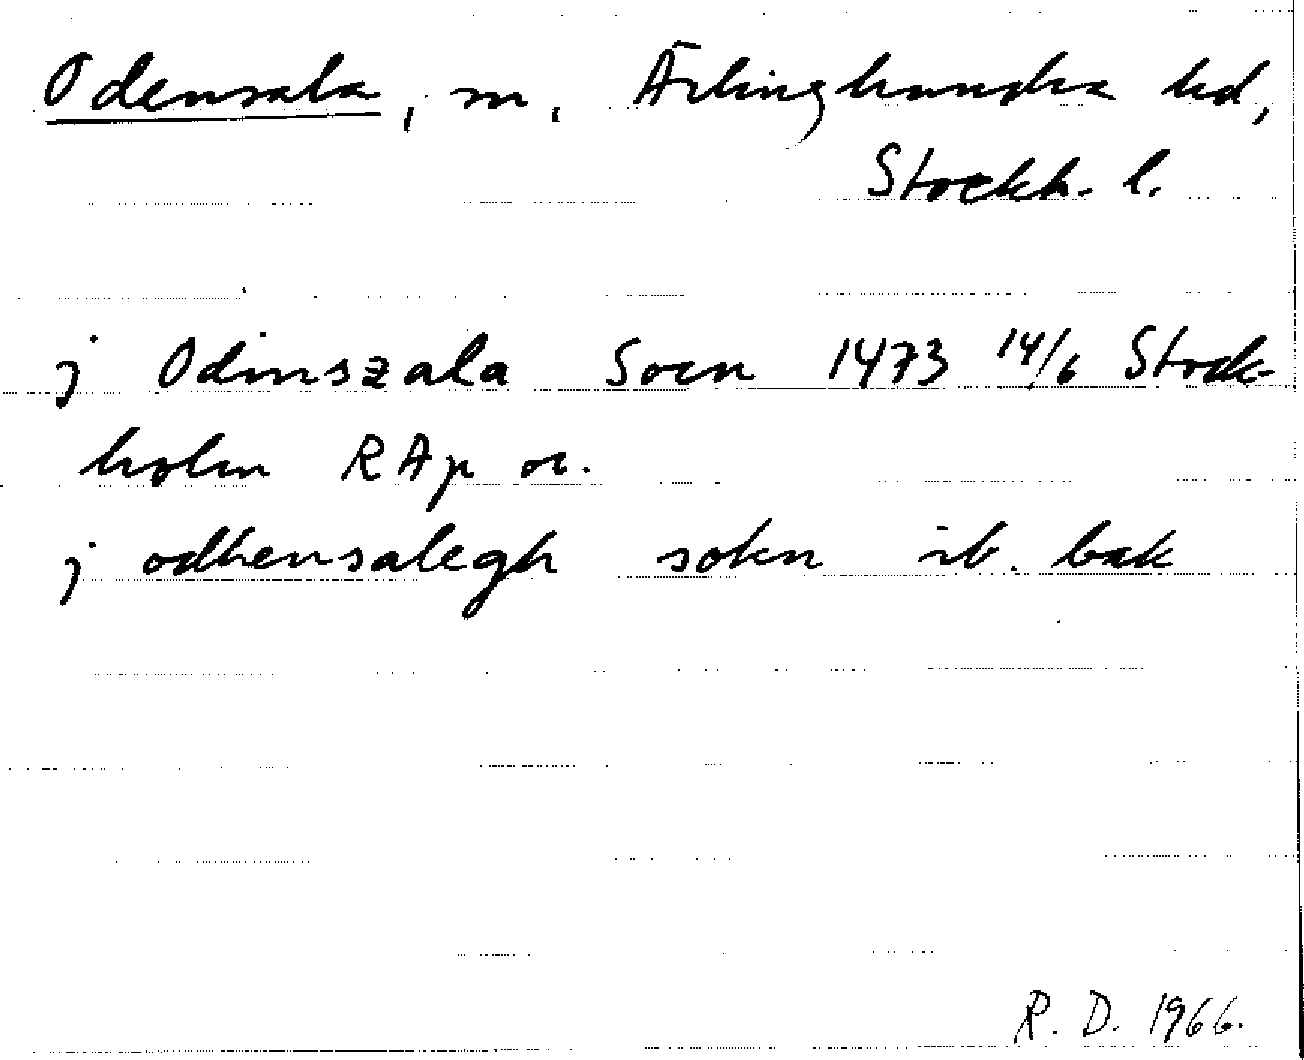 Odensala, sn, Ärlinghundra hd,
Stockh. l.
j Odinszala Socn 1473 14/6 Stock-
holm RAp or.
j odhensalegh sokn ib. bak
R. D. 1966.